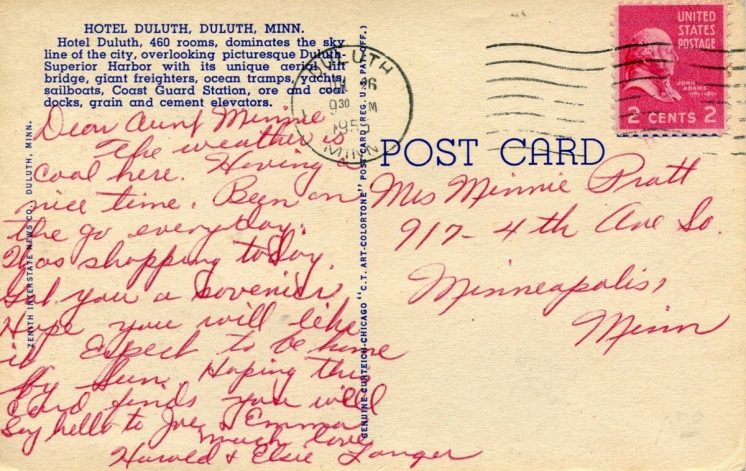 HOTEL DULUTH, DULUTH, MINN.
Hotel Duluth, 460 rooms, dominates the sky
line of the city, overlooking picturesque Duluth-
Superior Harbor with its unique aerial lift
bridge, giant freighters, ocean tramps, yachts,
sailboats, Coast Guard Station, ore and coal
docks, grain and cement elevators.
Dear Aunt Minnie
The weather is
cool here. Having a
nice time. Been on
the go everyday.
Was shopping today.
Got you a sovenier.
Hope you will like
it Expect to be home
by Sun. Hoping this
card finds you well
Say hello to Joe & Emma
Much love
Harold & Elsie Langer
ZENITH INTERSTATE NEWS CO., DULUTH, MINN.
GENUINE CURTEICH-CHICAGO "C.T. ART-COLORTONE" POST CARD (REG. U.S. PAT. OFF.)
DULUTH
26
9 30 M
MINN
UNITED
STATES
POSTAGE
JOHN
ADAMS
2 CENTS 2
POST CARD
Mrs Minnie Pratt
917- 4th Ave So.
Minneapolis,
Minn